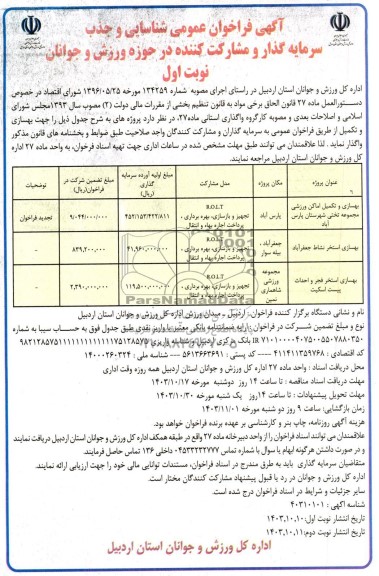 آگهی فراخوان عمومی شناسایی و جذب
سرمایه گذار و مشارکت کننده در حوزه ورزش و جوانان
نوبت اول
اداره کل ورزش و جوانان استان اردبیل در راستای اجرای مصوبه شماره ۱۳۴۲۵۹ مورخه ۱۳۹۶/۰۵/۲۵ شورای اقتصاد در خصوص
دستورالعمل ماده ۲۷ قانون الحاق برخی مواد به قانون تنظیم بخشی از مقررات مالی دولت (۲) مصوب سال ۱۳۹۳مجلس شورای
اسلامی و اصلاحات بعدی و مصوبه کارگروه واگذاری استانی ماده۲۷، در نظر دارد پروژه های به شرح جدول ذیل را جهت بهسازی
و تکمیل از طریق فراخوان عمومی به سرمایه گذاران و مشارکت کنندگان واجد صلاحیت طبق ضوابط و بخشنامه های قانون مذکور
واگذار نماید . لذا علاقمندان می توانند طبق مهلت مشخص شده در ساعات اداری جهت تهیه اسناد فراخوان، به واحد ماده ۲۷ اداره
کل ورزش و جوانان استان اردبیل مراجعه نمایند.
عنوان پروژه | مکان پروژه | مدل مشارکت | مبلغ اولیه آورده سرمایه گذاری (ریال) | مبلغ تضمین شرکت در فراخوان(ریال) | توضیحات
بهسازی و تکمیل اماکن ورزشی مجموعه تختی شهرستان پارس آباد | پارس آباد | R.O.L.T تجهیز و بازسازی، بهره برداری ، پرداخت اجاره بهاء و انتقال | ۴۵۲/۱۵۳/۴۲۲/۸۱۱ | ۹/۰۴۴/۰۰۰/۰۰۰ | تجدید فراخوان
بهسازی استخر نشاط جعفرآباد | جعفرآباد ، بیله سوار | R.O.L.T تجهیز و بازسازی، بهره برداری ، پرداخت اجاره بهاء و انتقال | ۴۱,۹۶۰,۰۰۰,۰۰۰ | ۸۳۹,۲۰۰,۰۰۰ | -
بهسازی استخر فجر و احداث پیست اسکیت | مجموعه ورزشی شاهماری نمین | R.O.L.T تجهیز و بازسازی، بهره برداری ، پرداخت اجاره بهاء و انتقال | ۱۱۹,۵۰۰,۰۰۰,۰۰۰ | ۲,۳۹۰,۰۰۰,۰۰۰ | -
نام و نشانی دستگاه برگزار کننده فراخوان: اردبیل ـ میدان ورزش اداره کل ورزش و جوانان استان اردبیل
نوع و مبلغ تضمین شرکت در فراخوان: ارائه ضمانتنامه بانکی معتبر یا واریز نقدی طبق جدول فوق به حساب سیبا به شماره
کد اقتصادی : ۴۱۱۴۱۱۳۵۹۷۶۸ ---- کد پستی : ۵۶۱۳۶۶۳۶۹۱ ---- شناسه ملی : ۱۴۰۰۰۲۶۰۳۲۴
محل دریافت اسناد : واحد ماده ۲۷ اداره کل ورزش و جوانان استان اردبیل همه روزه وقت اداری
مهلت دریافت اسناد مناقصه : تا ساعت ۱۴ روز دوشنبه مورخه ۱۴۰۳/۱۰/۱۷
مهلت تحویل پیشنهادات : تا ساعت ۱۴روز یک شنبه مورخه ۱۴۰۳/۱۰/۳۰
زمان بازگشایی: ساعت ۹ روز دو شنبه مورخه ۱۴۰۳/۱۱/۰۱
هزینه آگهی روزنامه، چاپ بنر و کارشناسی بر عهده برنده فراخوان خواهد بود.
علاقمندان می توانند اسناد فراخوان را از واحد دبیرخانه ماده ۲۷ واقع در طبقه همکف اداره کل ورزش و جوانان استان اردبیل دریافت نمایند
و در صورت داشتن هرگونه ابهام با سوال با شماره تماس ۰۴۵۳۳۲۳۲۷۷۷ داخلی ۱۳۶ تماس حاصل فرمایند.
متقاضیان سرمایه گذاری باید به طرق مندرج در اسناد فراخوان، مستندات توانایی مالی خود را جهت ارزیابی ارائه نمایند.
اداره کل ورزش و جوانان در رد یا قبول پیشنهاد مشارکت کنندگان مختار است.
سایر جزئیات و شرایط در اسناد فراخوان درج شده است.
شناسه آگهی : ۴۰۳۱۰۱۰۱
تاریخ انتشار نوبت اول:۱۴۰۳,۱۰,۱۰
تاریخ انتشار نوبت دوم:۱۴۰۳,۱۰,۱۱
اداره کل ورزش و جوانان استان اردبیل